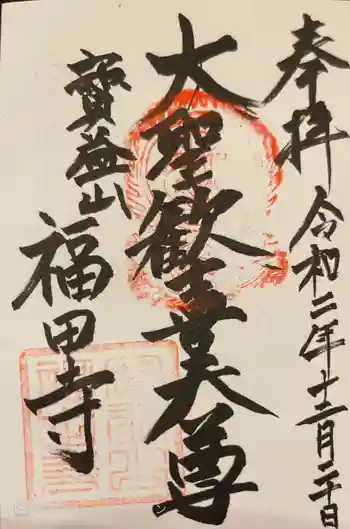 奉拝 令和二年十二月二十日
大聖歓喜天尊
寶益山
福田寺